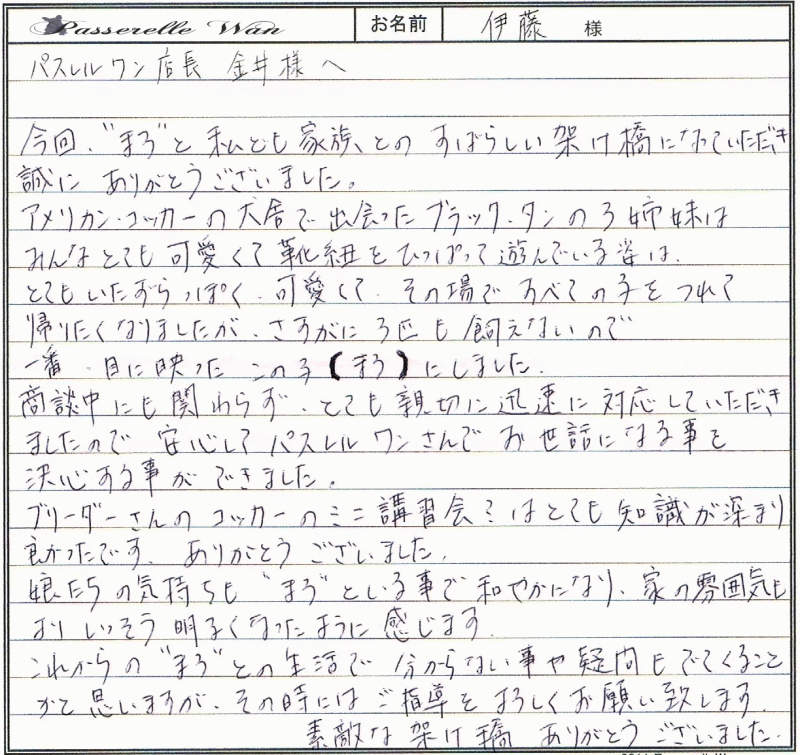 Passerelle Wan お名前 伊藤 様
パスレルワン店長 金井様へ
今回、"まろ"と私ども家族、とのすばらしい架け橋になっていただき
誠にありがとうございました。
アメリカン・コッカーの犬舎で出会ったブラック・タンの3姉妹は
みんなとても可愛くて靴紐をひっぱって遊んでいる姿は、
とてもいたずらっぽく、可愛くて、その場ですべての子をつれて
帰りたくなりましたが、さすがに3匹も飼えないので
一番、目に映ったこの子(まろ)にしました。
商談中にも関わらず、とても親切に迅速に対応していただき
ましたので安心してパスレルワンさんでお世話になる事を
決心する事ができました。
ブリーダーさんのコッカーのミニ講習会?はとても知識が深まり
良かったです。ありがとうございました。
娘たちの気持ちも"まろ"といる事で和やかになり、家の雰囲気も
よりいっそう明るくなったように感じます。
これからの"まろ"との生活で分からない事や疑問もでてくること
かと思いますが、その時にはご指導をよろしくお願い致します。
素敵な架け橋ありがとうございました。